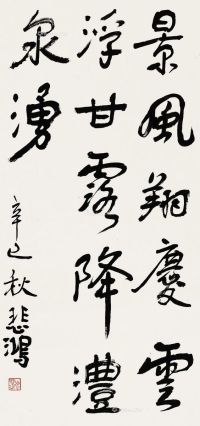 景風翔慶雲
浮甘露降澧
泉湧
辛巳秋悲鴻